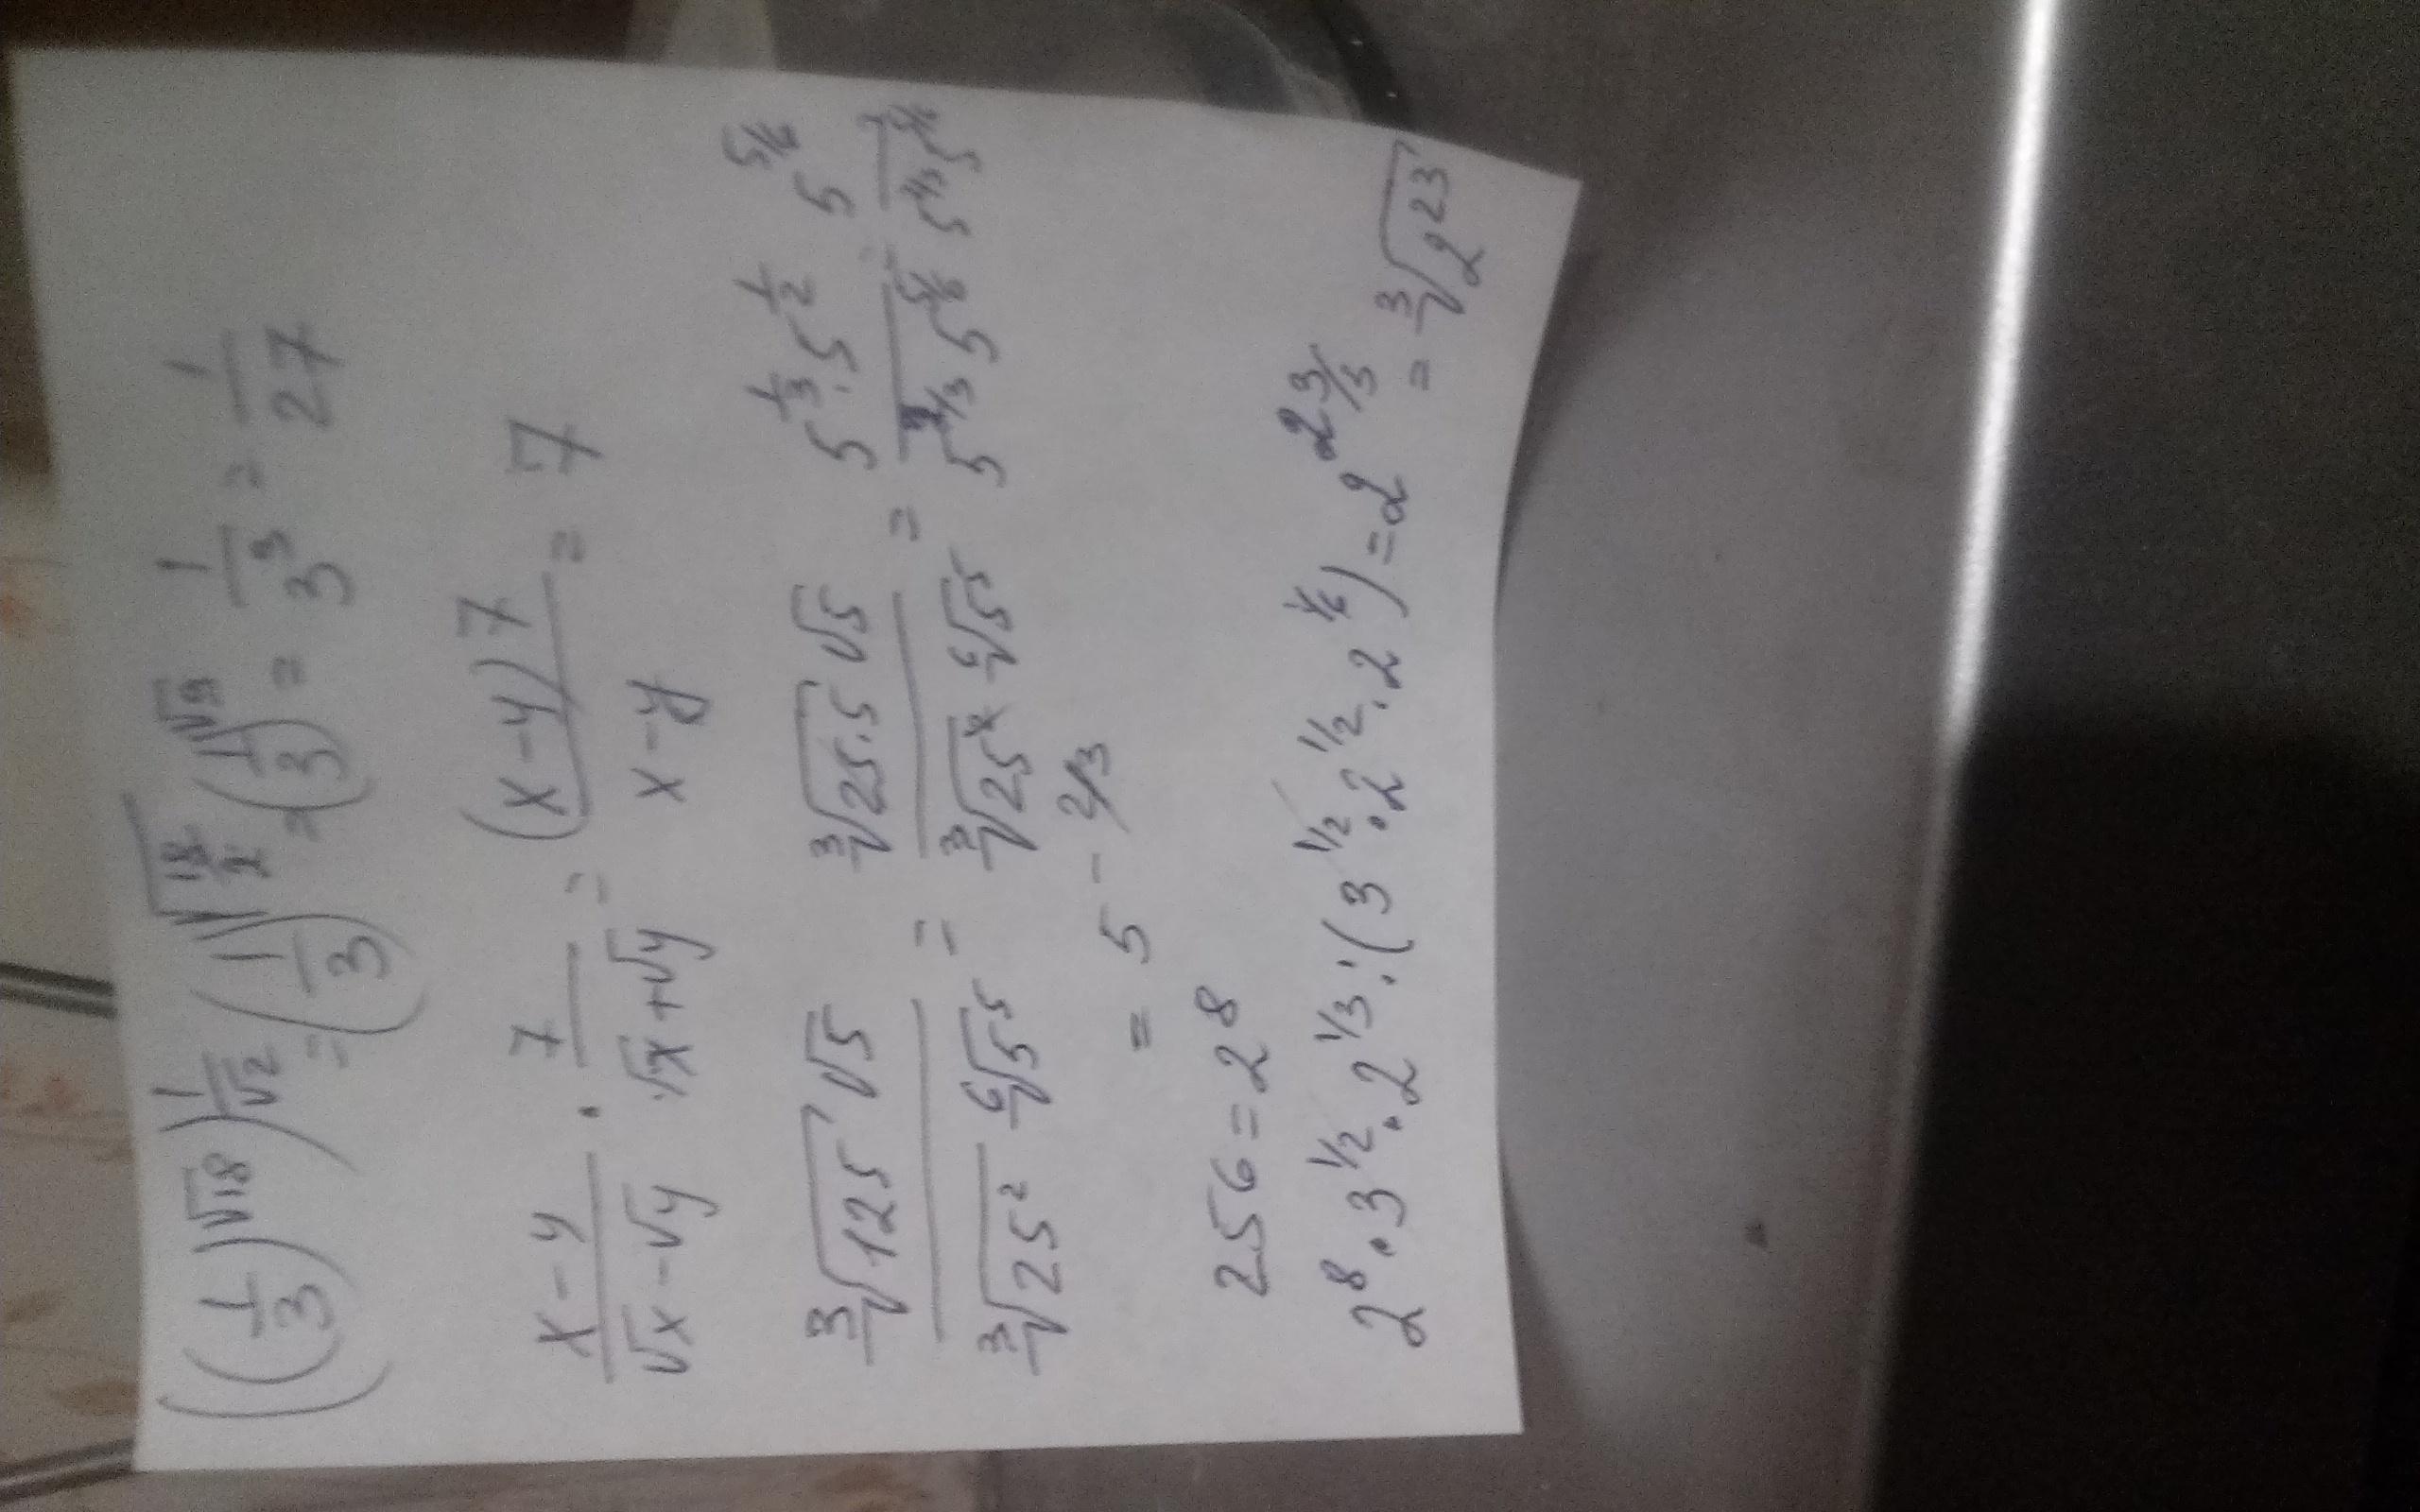 ((1/3)^√18)^(1/√2) = (1/3)^√(18/2) = (1/3)^√9 = 1/3³ = 1/27
(x-y)/(√x-√y) · 7/(√x+√y) = (x-y)7/(x-y) = 7
(∛125 √5)/(∛25² ⁶√5⁵) = (∛25·5 √5)/(∛25² ⁶√5⁵) = (5^(1/3)·5^(1/2))/(5^(4/3) 5^(5/6)) 5^(5/6)
= 5^(-2/3)
256 = 2⁸
2⁸·3^(1/2)·2^(1/3):(3^(1/2)·2^(1/2)·2^(1/6)) = 2^(23/3) = ∛2²³